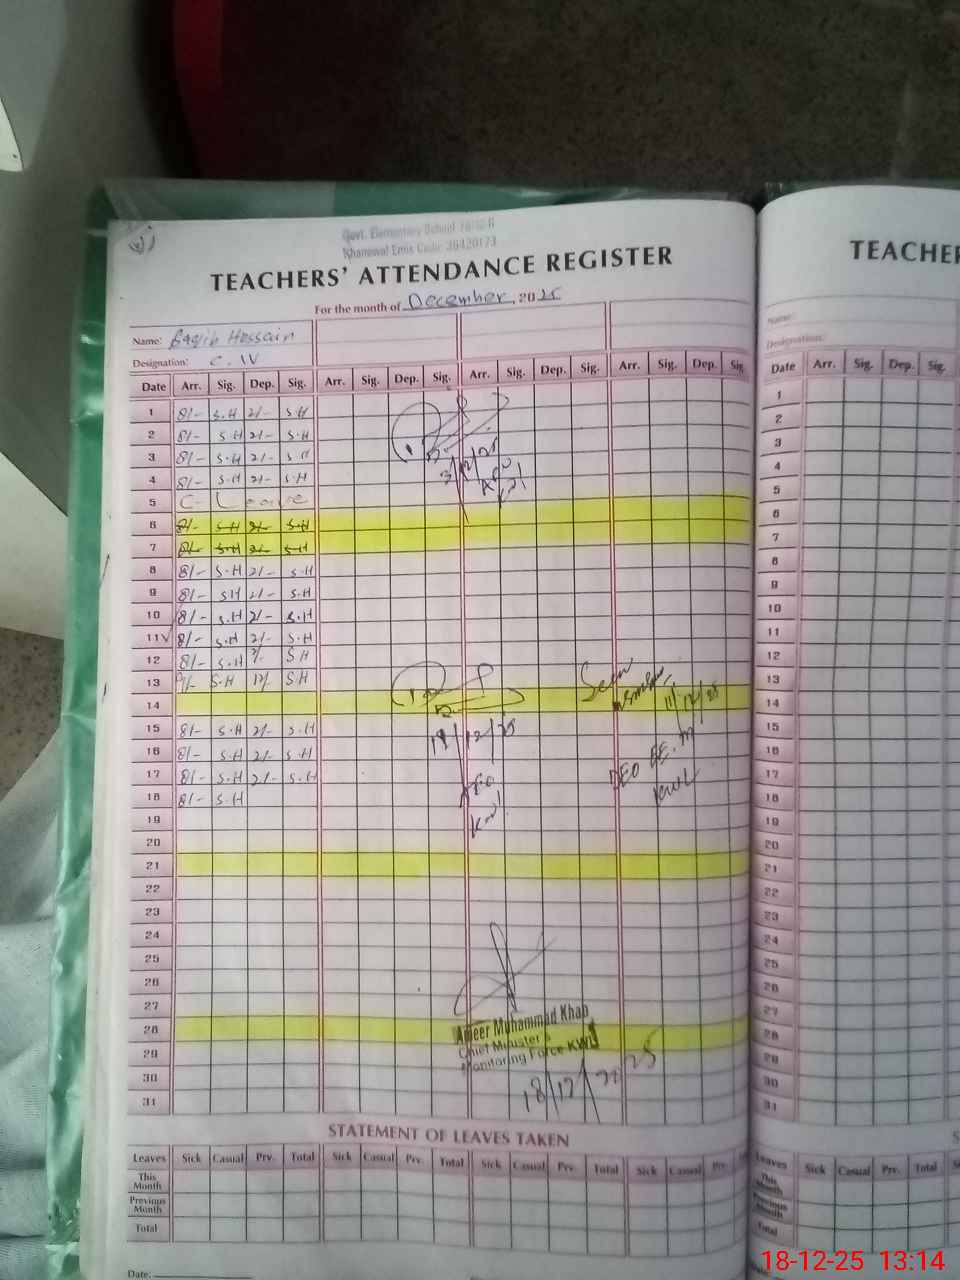 Govt. Elementary School
Khanewal Emis Code 36420173
TEACHERS' ATTENDANCE REGISTER
For the month of December, 2025
Name: Hossain
Designation: C. IV
Date Arr. Sig. Dep. Sig. Arr. Sig. Dep. Sig. Arr. Sig. Dep. Sig. Arr. Sig. Dep. Sig
1 8/- S.H 2/- S.H
2 8/- S.H 2/- S.H
3 8/- S.H 2/- S.H
4 8/- S.H 2/- S.H
5 C- Leave
6 8/- S.H 2/- S.H
7 8/- S.H 2/- S.H
8 8/- S.H 2/- S.H
9 8/- S.H 2/- S.H
10 8/- S.H 2/- S.H
11 8/- S.H 2/- S.H
12 8/- S.H 2/- S.H
13 S.H 12/- S.H
14
15 8/- S.H 2/- S.H
16 8/- S.H 2/- S.H
17 8/- S.H 2/- S.H
18 8/- S.H
19
20
21
22
23
24
25
26
27
28
29
30
31
3/12/25
Seen
11/12/25
DEO EE.M
KWL
/12/25
Ameer Muhammad Khan
Chief Minister's
Monitoring Force KWL
18/12/2025
STATEMENT OF LEAVES TAKEN
Leaves Sick Casual Prv. Total Sick Casual Prv. Total Sick Casual Prv. Total Sick Casual Prv.
This Month
Previous Month
Total
Date:
TEACHER
Name:
Designation:
Date Arr. Sig. Dep. Sig.
1
2
3
4
5
6
7
8
9
10
11
12
13
14
15
16
17
18
19
20
21
22
23
24
25
26
27
28
29
30
31
S
Leaves Sick Casual Prv. Total
This Month
Previous Month
Total
18-12-25 13:14